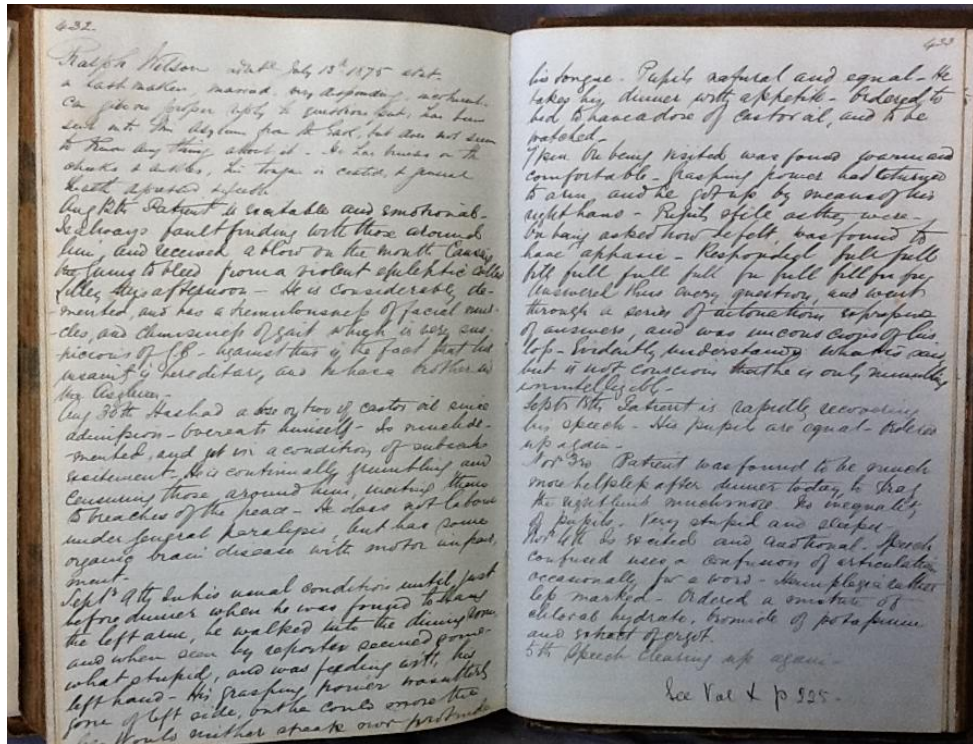 432.
Ralph Wilson admtd July 13th 1875 aet.
a last maker, married, very desponding,
can give no proper reply to questions put, has been
sent into the Asylum from the Gaol, but does not seem
to know any thing about it - He has bruises on the
cheeks & ankles, his tongue is coated, & general
health
Aug 12th Patient is excitable and emotional -
Is always fault finding with those around
him, and received a blow on the mouth causing
his gums to bleed from a violent epileptic
this afternoon - He is considerably de-
mented, and has a tremulousness of facial mus-
cles, and clumsiness of gait which is very sus-
picious of G.P. - against this is the fact that his
insanity is hereditary and he has a brother in
the Asylum -
Aug 30th Has had a dose or two of castor oil since
admission - Overeats himself - Is much de-
mented, and yet in a condition of subacute
excitement - He is continually grumbling and
censuring those around him, inciting them
to breaches of the peace - He does not labour
under general paralysis, but has some
organic brain disease with motor impair-
ment -
Septr 9th In his usual condition until just
before dinner when he was found to hang
the left arm, he walked into the dining room,
and when seen by reporter seemed some-
what stupid, and was feeding with his
left hand - His grasping power was utterly
gone of left side, but he could move the
Would neither speak nor protrude
433
his tongue - Pupils natural and equal - He
takes his dinner with appetite - Ordered to
bed to have a dose of castor oil, and to be
watched -
7 p.m. On being visited was found warm and
comfortable - grasping power had returned
to arm, and he got up by means of his
right hand - Pupils still as they were -
On being asked how he felt, was found to
have aphasia - Responded full full
full full full full
Answered thus every question, and went
through a series of intonations
of answers, and was unconscious of his
loss - Evidently understands what is said,
but is not conscious that he is only mumbling
unintelligibly -
Septr 13th Patient is rapidly recovering
his speech - His pupils are equal - Ordered
up again -
Novr 3rd Patient was found to be much
more helpless after dinner today, to drag
the right limb much more - No inequality
of pupils - Very stupid and sleepy -
Novr 4th Is excited and emotional - Speech
confused uses a confusion of articulation
occasionally for a word - Hemiplegia rather
less marked - Ordered a mixture of
chloral hydrate, bromide of potassium
and extract of ergot.
5th Speech clearing up again -
See Vol X p 225 -